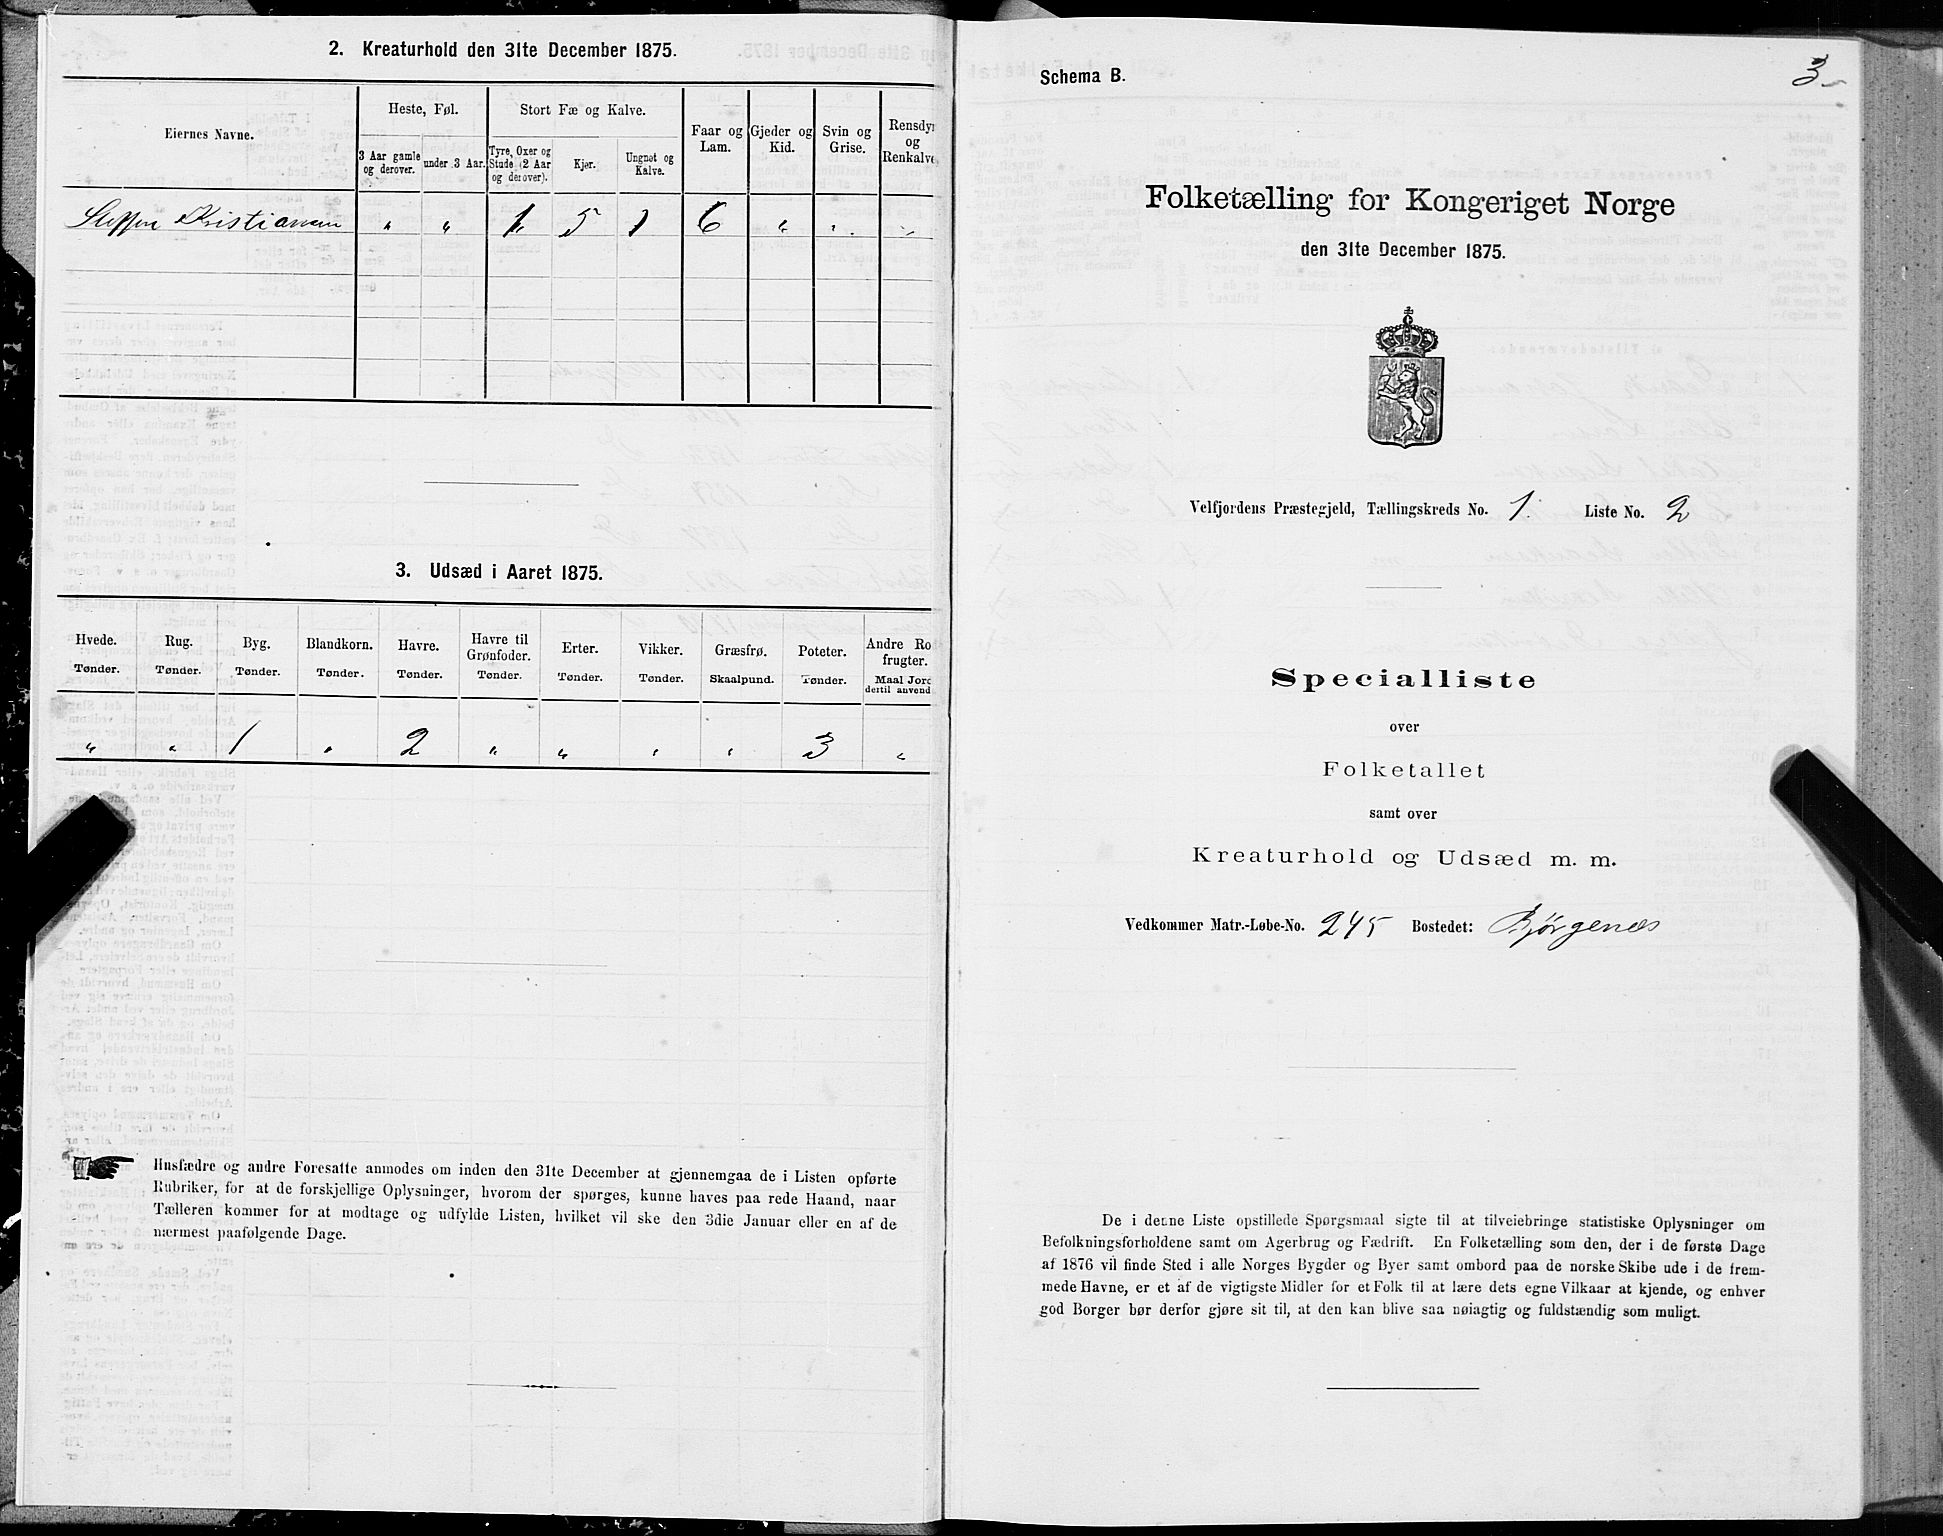 2. Kreaturhold den 31te December 1875.
Eiernes Navne.
Heste, Føl.
3 Aar gamle og derover.
under 3 Aar.
Stort Fæ og Kalve.
Tyre, Oxer og Stude (2 Aar og derover).
Kjør.
Ungnøt og Kalve.
Faar og Lam.
Gjeder og Kid.
Svin og Grise.
Rensdyr og Renkalve.
Steffen Kristiansen " " 1 5 1 6 " " "
3. Udsæd i Aaret 1875.
Hvede. Rug. Byg. Blandkorn. Havre. Havre til Grønfoder. Erter. Vikker. Græsfrø. Poteter. Andre Ro frugter.
Tønder. Tønder. Tønder. Tønder. Tønder. Tønder. Tønder. Tønder. Skaalpund. Tønder. Maal Jord dertil anvend
" " 1 " 2 " " " " 3 "
Husfædre og andre Foresatte anmodes om inden den 31te December at gjennemgaa de i Listen opførte
Rubriker, for at de forskjellige Oplysninger, hvorom der spørges, kunne haves paa rede Haand, naar
Tælleren kommer for at modtage og udfylde Listen, hvilket vil ske den 3die Januar eller en af de
nærmest paafølgende Dage.
3
Schema B.
Folketælling for Kongeriget Norge
den 31te December 1875.
Velfjordens Præstegjeld, Tællingskreds No. 1. Liste No. 2
Specialliste
over
Folketallet
samt over
Kreaturhold og Udsæd m. m.
Vedkommer Matr.-Løbe-No. 245 Bostedet: Bjørgenæs
De i denne Liste opstillede Spørgsmaal sigte til at tilveiebringe statistiske Oplysninger om
Befolkningsforholdene samt om Agerbrug og Fædrift. En Folketælling som den, der i de første Dage
af 1876 vil finde Sted i alle Norges Bygder og Byer samt ombord paa de norske Skibe ude i de frem-
mede Havne, er et af de vigtigste Midler for et Folk til at lære dets egne Vilkaar at kjende, og enhver
god Borger bør derfor gjøre sit til, at den kan blive saa nøiagtig og fuldstændig som muligt.